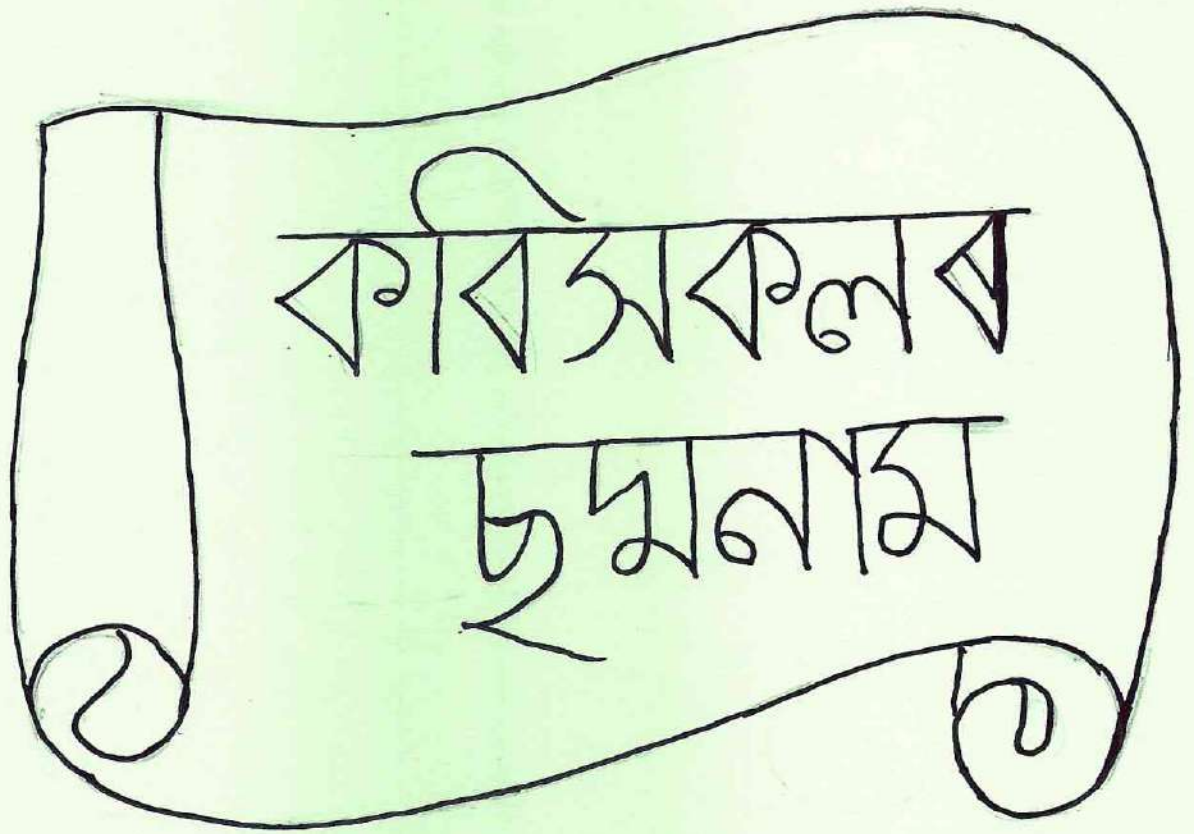 কবিসকলৰ
ছদ্মনাম